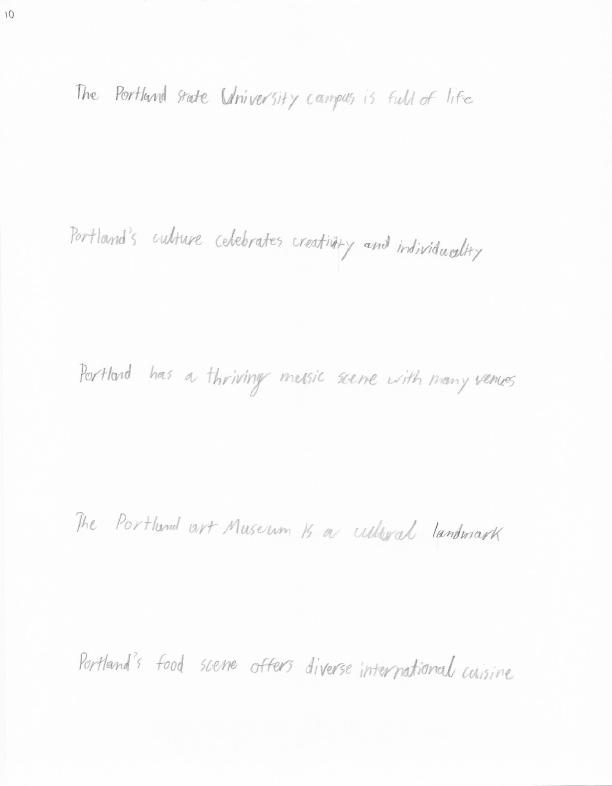 10
The Portland state University campus is full of life
Portland's culture celebrates creativity and individuality
Portland has a thriving music scene with many venues
The Portland art Museum is a cultural landmark
Portland's food scene offers diverse international cuisine